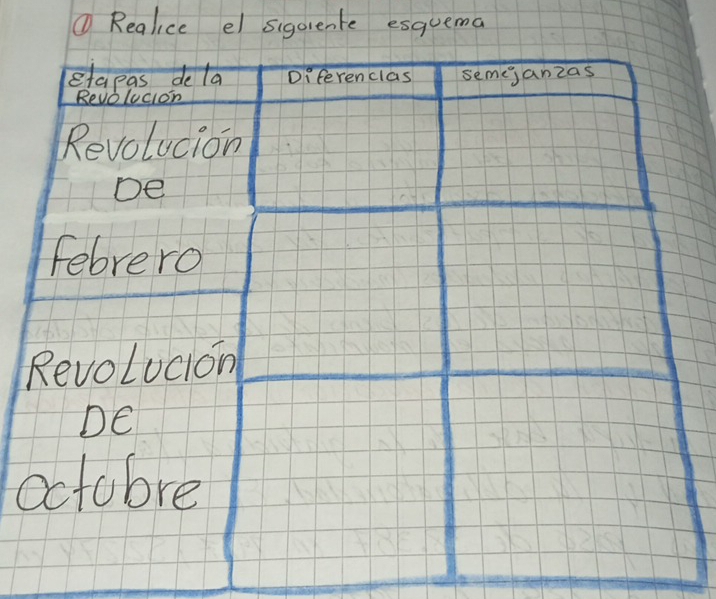 ① Realice el siguiente esquema
Etapas de la Revolución
Diferencias
semejanzas
Revolución
De
Febrero
Revolución
DE
octubre